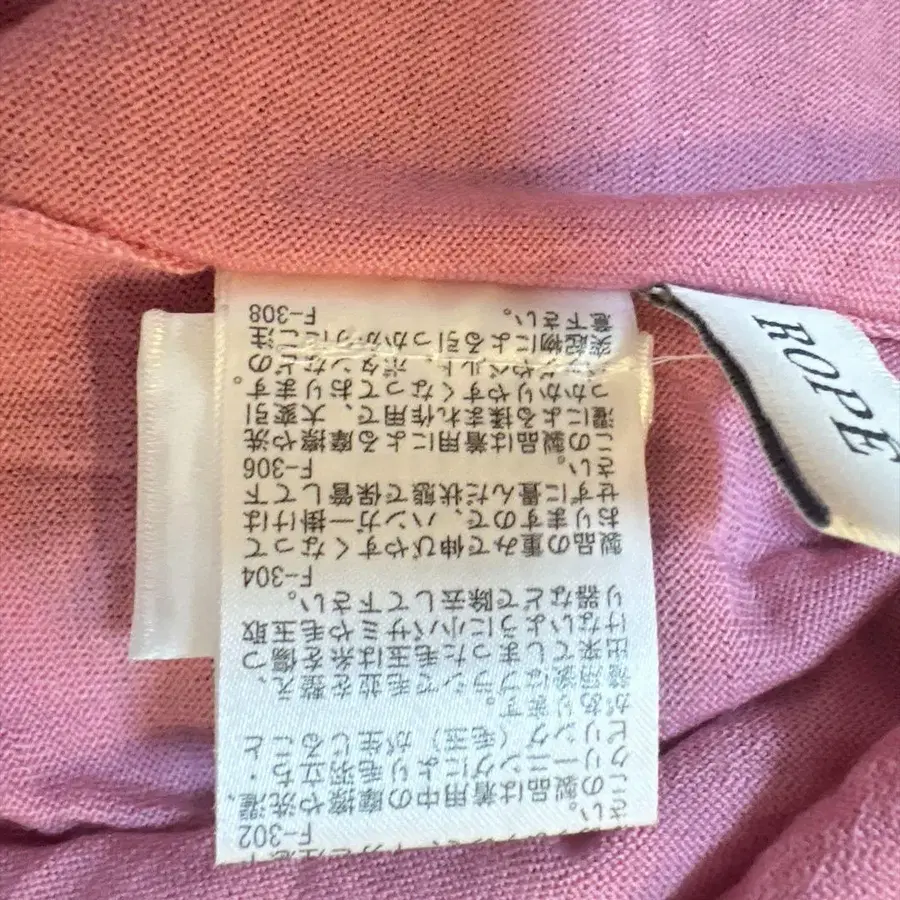 十分ご注意下
さい。 F-302
この製品は着用中の摩擦や洗濯、
クリーニングにより毛羽立ち・
ピリング(毛玉)が生じること
があります。
着用後はブラシで毛並を整え、
出来てしまった毛玉は糸を傷つ
けないように小バサミや毛玉取
り器などで除去して下さい。
F-304
製品の重みで伸びやすくなって
おりますので、ハンガー掛けは
せずに畳んだ状態で保管して下
さい。 F-306
この製品は着用による摩擦や洗
濯による揉まれ作用で、大変引
っかかりやすくなっております。
やベルト、ボタンなどの
突起物による引っかかりにご注
意下さい。 F-308
ROPE